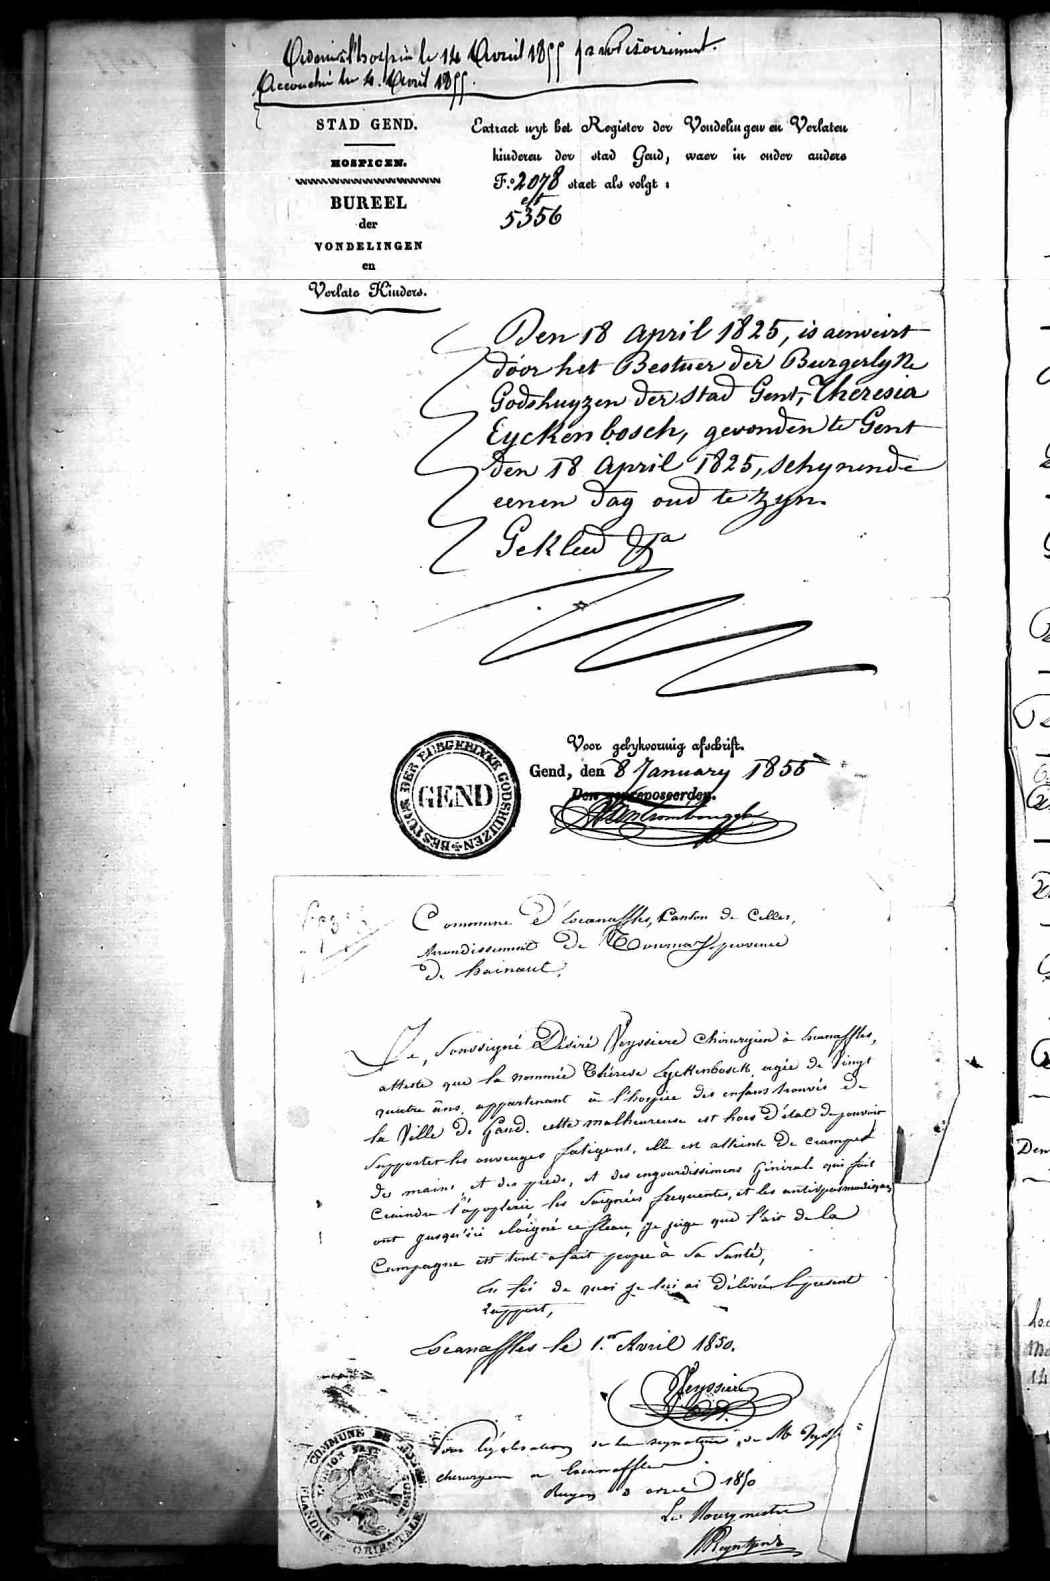 l'hospice le 14 Avril 1855
Accouchée le 4. Avril 1855.
STAD GEND.
HOSPICEN.
BUREEL
der
VONDELINGEN
en
Verlate Kinders.
Extract uyt het Register der Vondelingen en Verlaten
kinderen der stad Gend, waer in onder anders
F.º 2078 staet als volgt :
et
5356
Den 18 April 1825, is aenveirt
door het Bestuer der Burgerlyke
Godshuyzen der stad Gent, Theresia
Eyckenbosch, gevonden te Gent
den 18 April 1825, schynende
eenen dag oud te zyn.
Gekleed &a
BESTUUR DER BURGERLYKE GODSHUIZEN
GEND
Voor gelykvormig afschrift.
Gend, den 8 January 1855
Den geproposeerden.
Commune d'Escanaffles, Canton de Celles,
Arrondissement de Tournay, province
de hainaut,
Je, Soussigné Désiré Veyssiere chirurgien à Escanaffles,
atteste que la nommée Thérese Eyckenbosch, agée de Vingt
quatre âns, appartenant à l'hospice des enfans trouvés de
la Ville de Gand. cette malheureuse est hors d'état de pouvoir
Supporter les ouvrages fatigans, elle est atteinte de crampes
des mains, et des pieds, et des engourdissemens général qui fait
Craindre l'apoplexie, les Saignées frequentes, et les antispasmodiques
ont jusqu'ici éloigné ce fleau, je juge que l'air de la
Campagne est tout afait propre à Sa Santé,
En foi de quoi je lui ai délivré le present
rapport,
Escanaffles le 1.er Avril 1850.
Veyssiere
Pour légalisation de la signature de Mr
chirurgien a Escanaffles
1850
Le Bourgmestre
COMMUNE DE
FLANDRE ORIENTALE